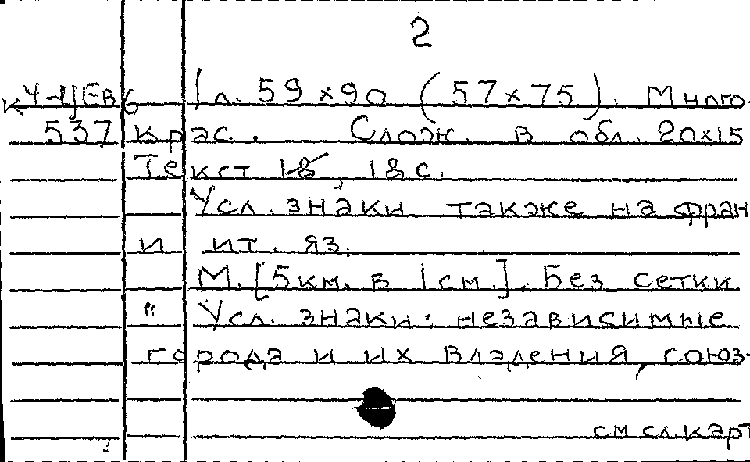 2
К Ч-ЦЕв6 1 л. 59×90 (57×75). Много-
537 крас. Слож. в обл. 20×15
Текст 18, 18 с.
Усл. знаки также на фран
и ит. яз.
М. [5км. в 1см.]. Без сетки
" Усл. знаки: независимые
города и их владения, союз-
см сл. карт